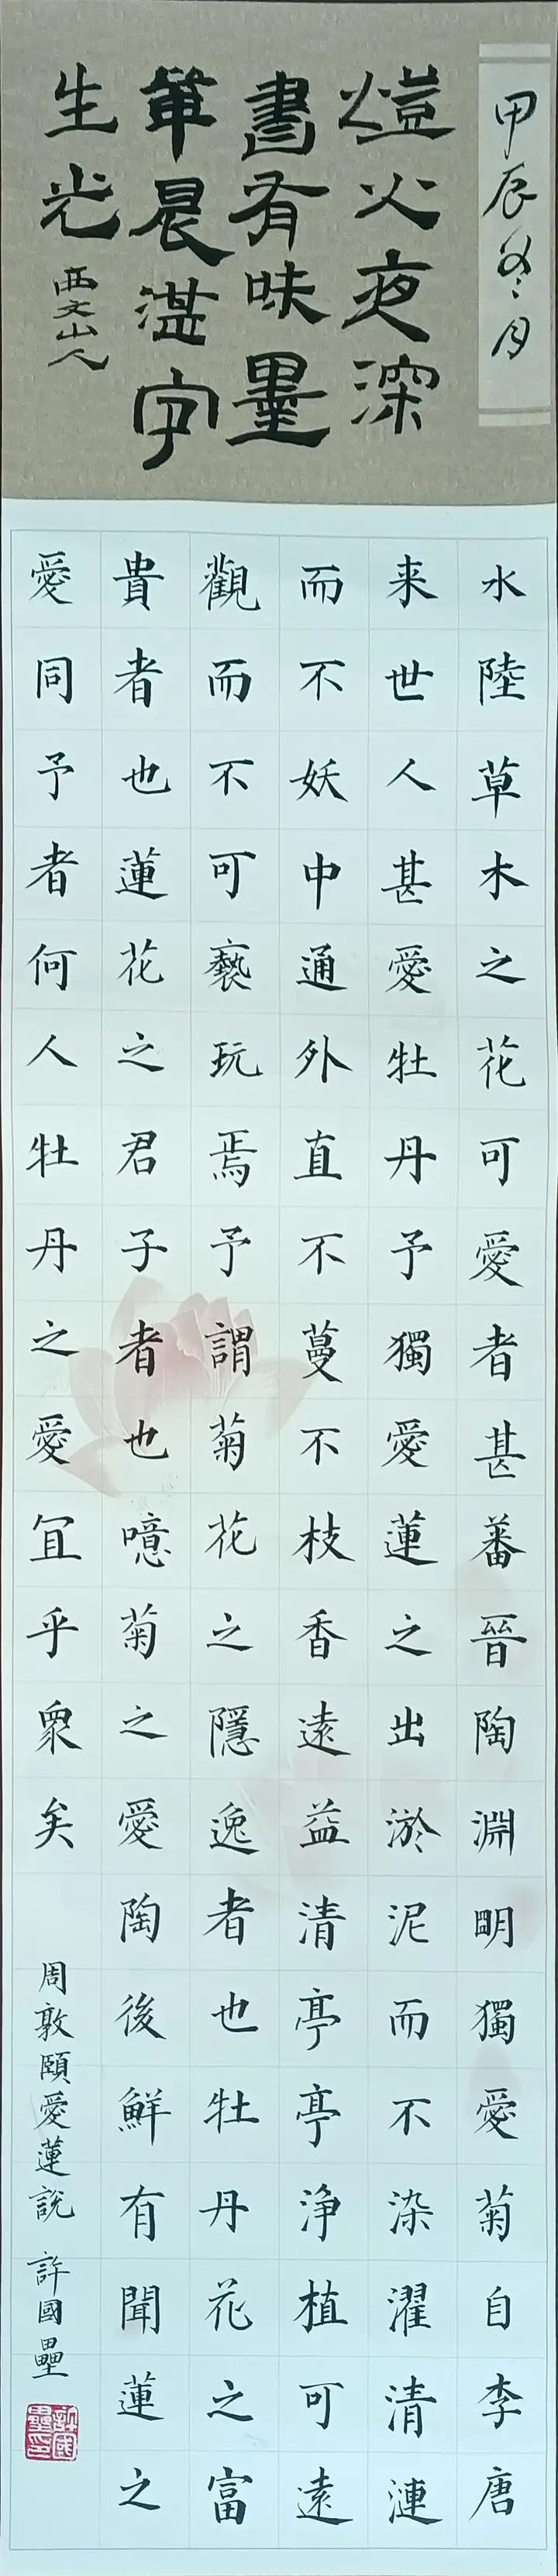 甲辰冬月
燈火夜深
書有味墨
華晨湛字
生光
西文山人
水陸草木之花可愛者甚蕃晉陶淵明獨愛菊自李唐
来世人甚愛牡丹予獨愛蓮之出淤泥而不染濯清漣
而不妖中通外直不蔓不枝香遠益清亭亭淨植可遠
觀而不可褻玩焉予謂菊花之隱逸者也牡丹花之富
貴者也蓮花之君子者也噫菊之愛陶後鮮有聞蓮之
愛同予者何人牡丹之愛宜乎眾矣
周敦頤愛蓮說 許國壘
許國壘印